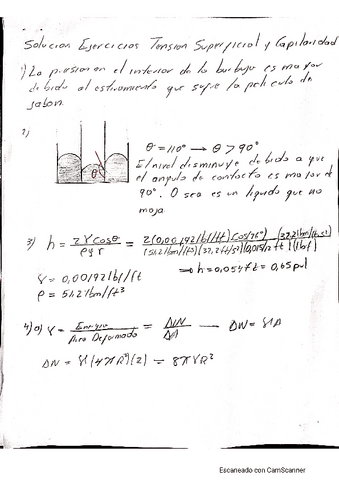 Solucion Ejercicios Tension Superficial y Capilaridad
1) La presion en el interior de la burbuja es mayor
debido al estiramiento que sufre la pelicula de
jabon.
2)
θ
θ = 110° → θ > 90°
El nivel disminuye debido a que
el angulo de contacto es mayor de
90°. O sea es un liquido que no
moja
3) h = 2γCosθ / ρgr = 2(0,00192 lbf/ft) Cos(76°) (32,2 lbm/ft.s²) / (51,2 lbm/ft³)(32,2 ft/s²)(ft)(1 lbf)
γ = 0,00192 lbf/ft
⇒ h = 0,054 ft = 0,65 pul
ρ = 51,2 lbm/ft³
4) a) γ = Energia / Area Deformado = ΔW / ΔA — ΔW = γΔ
ΔW = γ(4πR²)(2) = 8πγR²
Escaneado con CamScanner